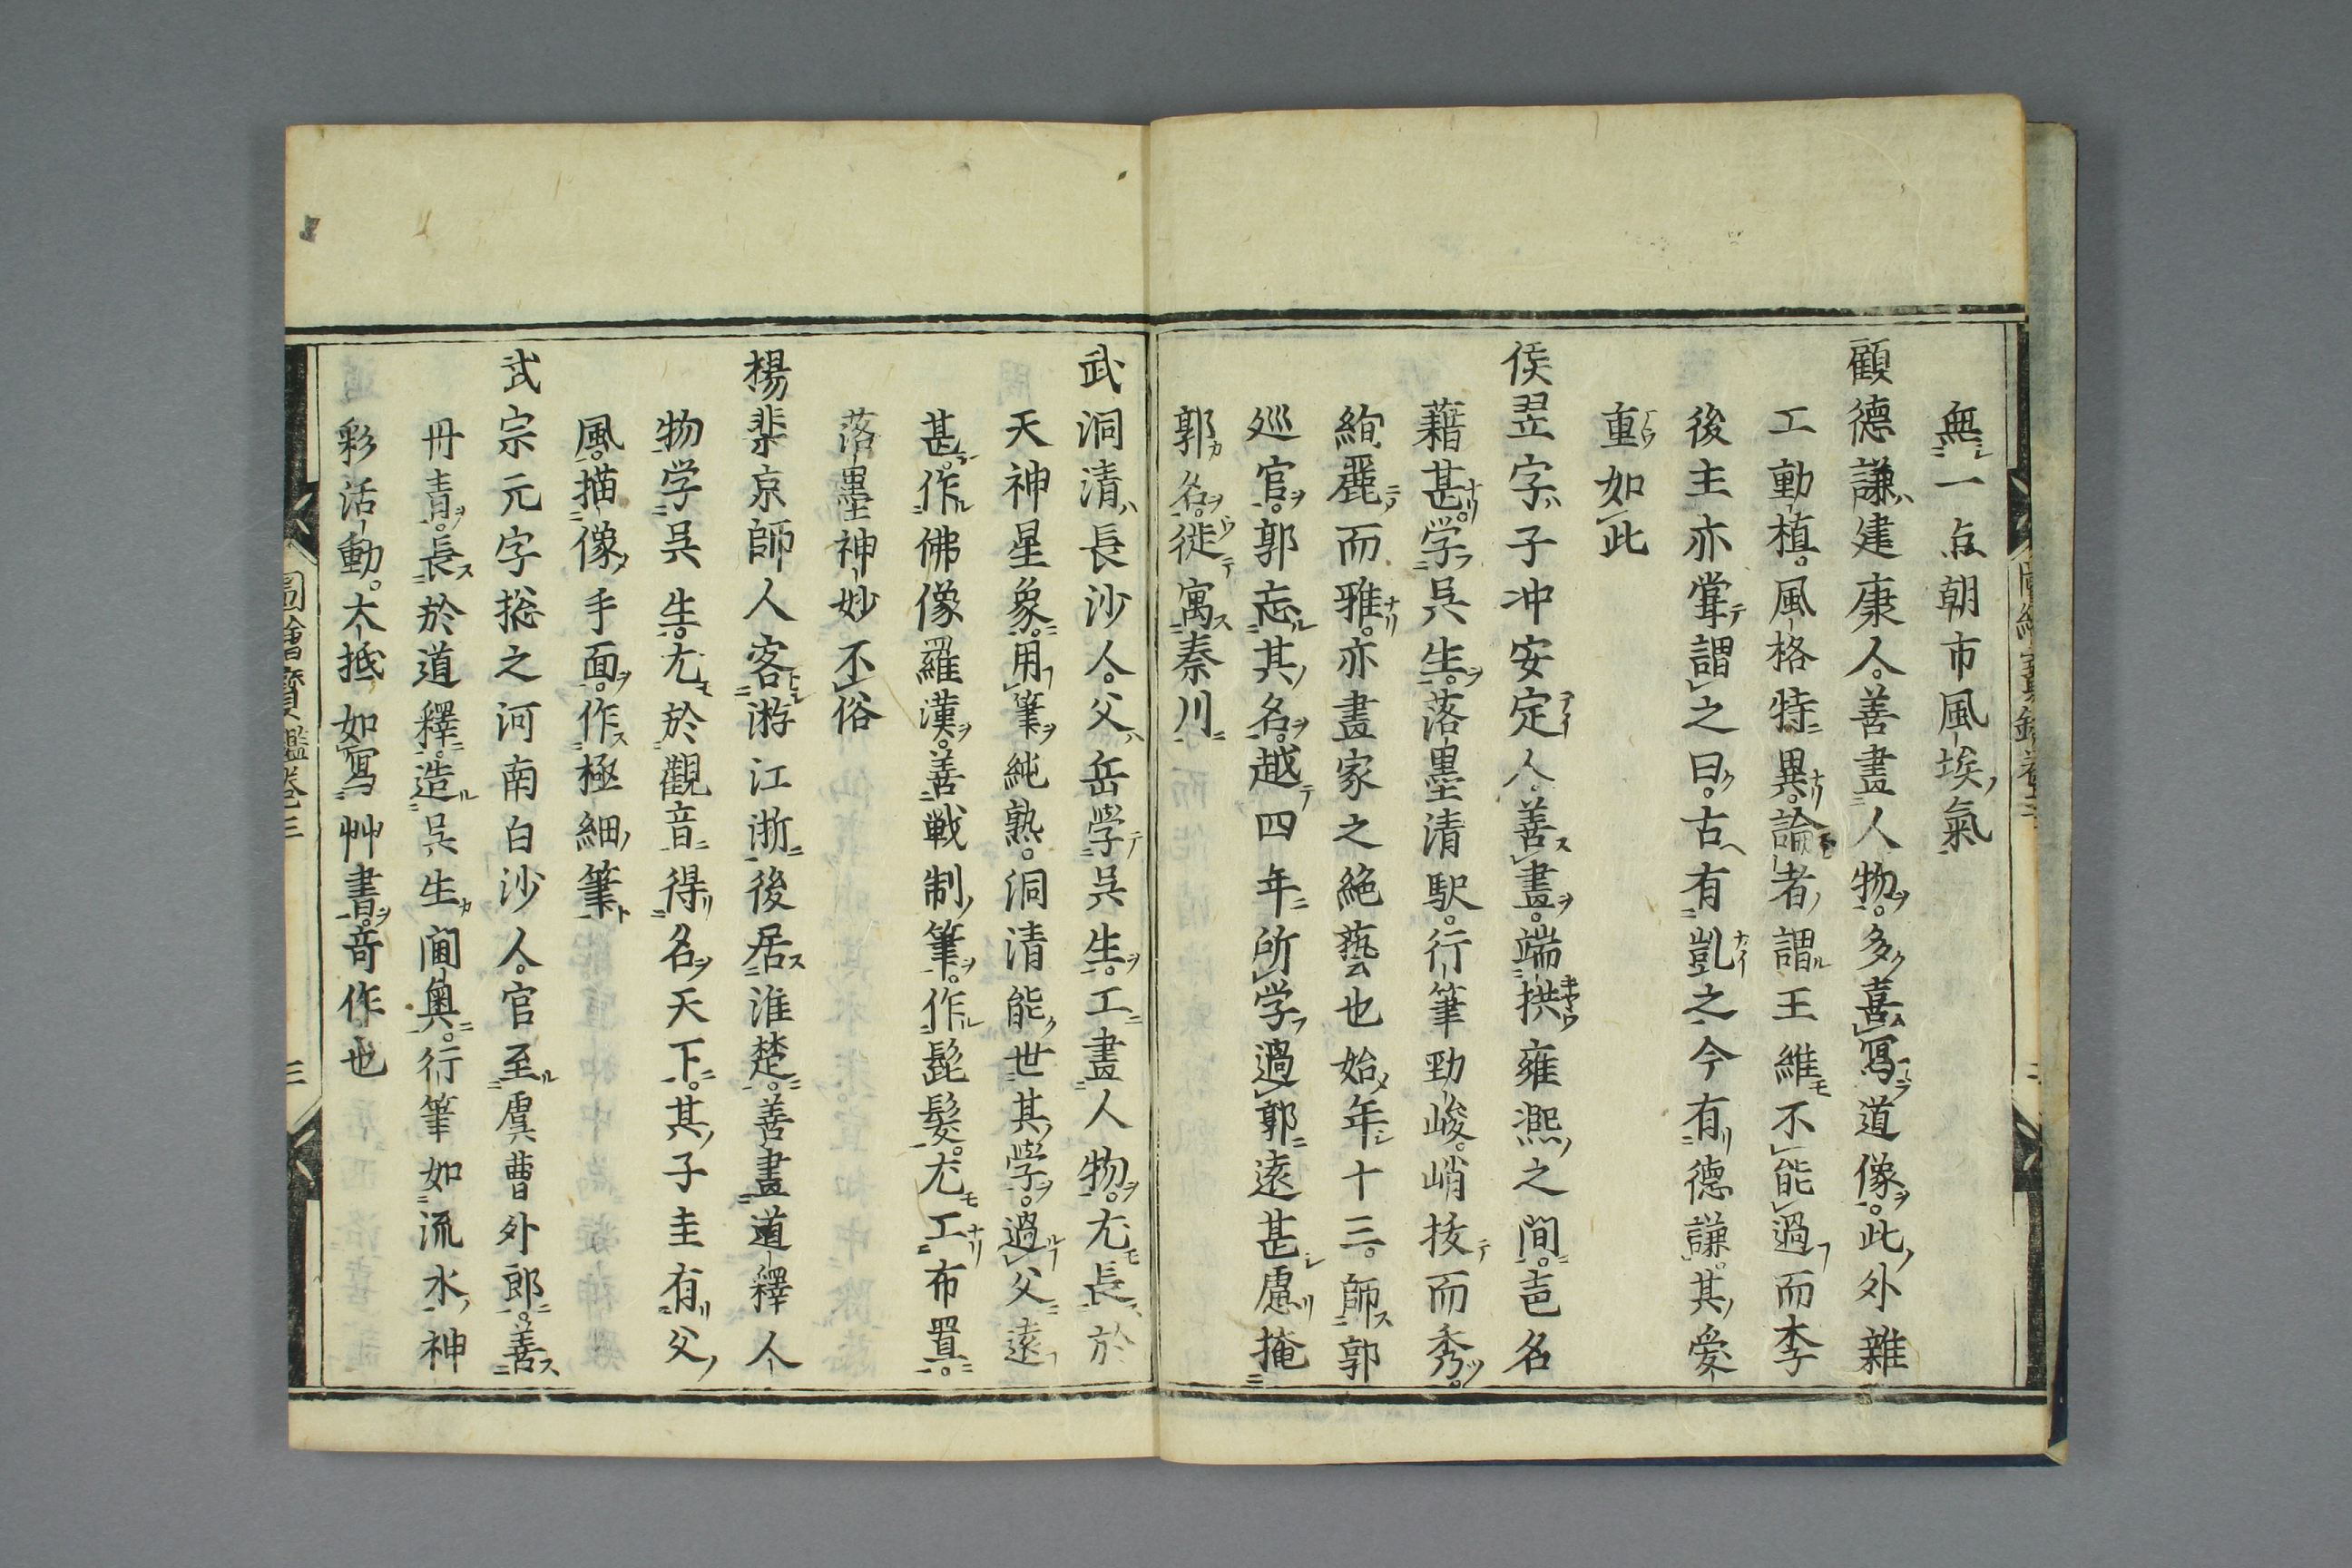 無一点朝市風埃氣
顧德謙建康人。善畫人物。多喜寫道像。此外雜
工動植。風格特異。論者謂王維不能過而李
後主亦嘗謂之曰。古有凱之今有德謙。其愛
重如此
侯翌字子冲安定人善畫。端拱雍熙之間。声名
藉甚。学呉生。落墨清駅。行筆勁峻。峭抜而秀。
絢麗而雅。亦畫家之絶藝也始年十三。師郭
廵官。郭忘其名。越四年所学過郭遠甚慮掩
郭名。徙寓秦川
武洞清長沙人。父岳学呉生。工畫人物。尤長於
天神星象。用筆純熟。洞清能世其學。過父遠
甚。作佛像羅漢。善戦制筆。作髭髮。尤工布置。
落墨神妙不俗
楊棐京師人客游江浙後居淮楚。善畫道釋人
物学呉生。尤於觀音得名天下。其子圭有父
風。描像手面。作極細筆
武宗元字捴之河南白沙人。官至虞曹外郎。善
丹青。長於道釋。造呉生閫奧。行筆如流水神
彩活動。大抵如寫艸書。奇作也
圖繪寶鑑卷三
三